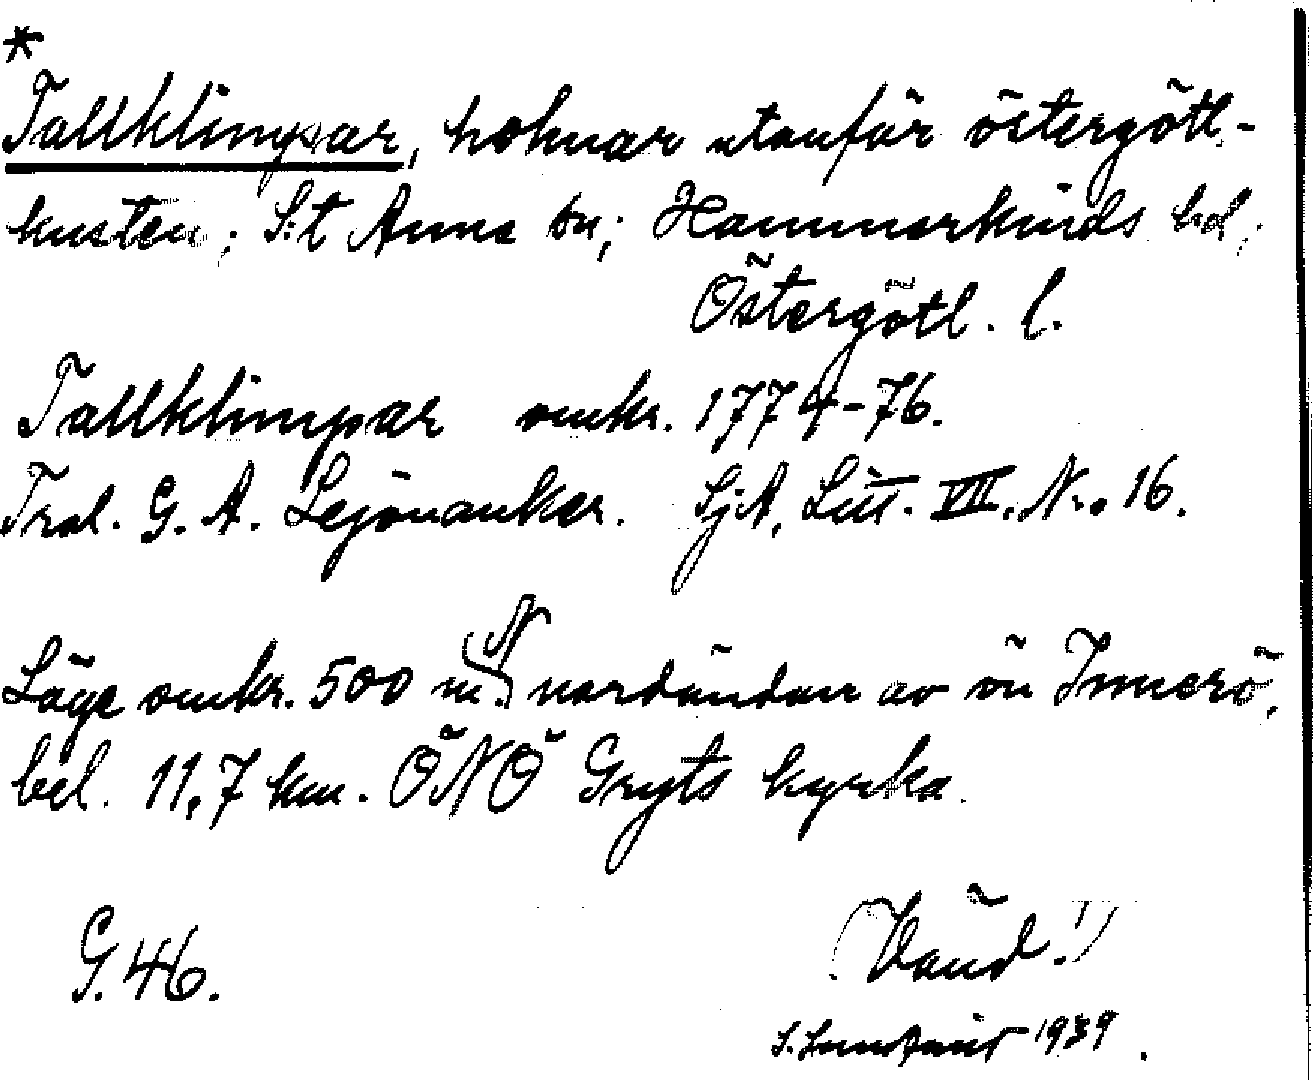 *
Tallklimpar, holmar utanför östergötl.-
kusten; S:t Anna sn; Hammarkinds hd;
Östergötl. l.
Tallklimpar omkr. 1774-76.
Tral. G. A. Lejonanker. SjA, Litt. VII. Nr. 16.
Läge omkr. 500 m. N nordändan av ön Innerö,
bel. 11,7 km. ÖNÖ Gryts kyrka.
G. 46.
(Vänd!)
1939.